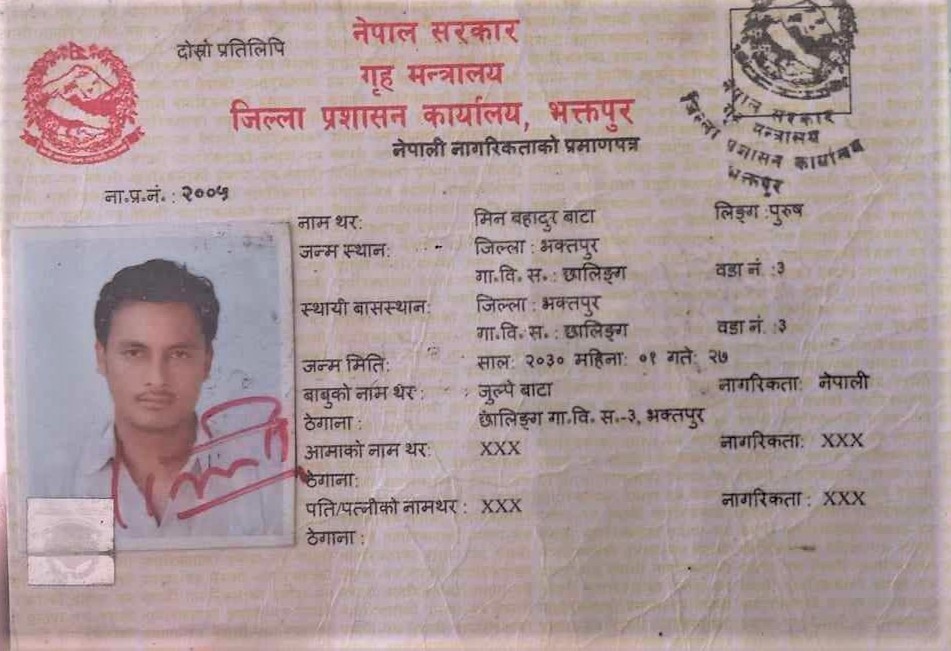 दोस्रो प्रतिलिपि
नेपाल सरकार
गृह मन्त्रालय
जिल्ला प्रशासन कार्यालय, भक्तपुर
नेपाली नागरिकताको प्रमाणपत्र
नेपाल सरकार
गृह मन्त्रालय
जिल्ला प्रशासन कार्यालय
भक्तपुर
ना.प्र.नं. : २००५
नाम थर: मिन बहादुर बाटा लिङ्ग :पुरुष
जन्म स्थान: जिल्ला : भक्तपुर
गा.वि.स. : छालिङ्ग वडा नं :३
स्थायी बासस्थान: जिल्ला : भक्तपुर
गा.वि.स. : छालिङ्ग वडा नं :३
जन्म मिति: साल: २०३० महिना: ०१ गते: २७
बाबुको नाम थर : जुल्पे बाटा नागरिकता: नेपाली
ठेगाना : छालिङ्ग गा.वि.स.-३, भक्तपुर
आमाको नाम थर: XXX नागरिकता: XXX
ठेगाना:
पति/पत्नीको नामथर : XXX नागरिकता : XXX
ठेगाना :